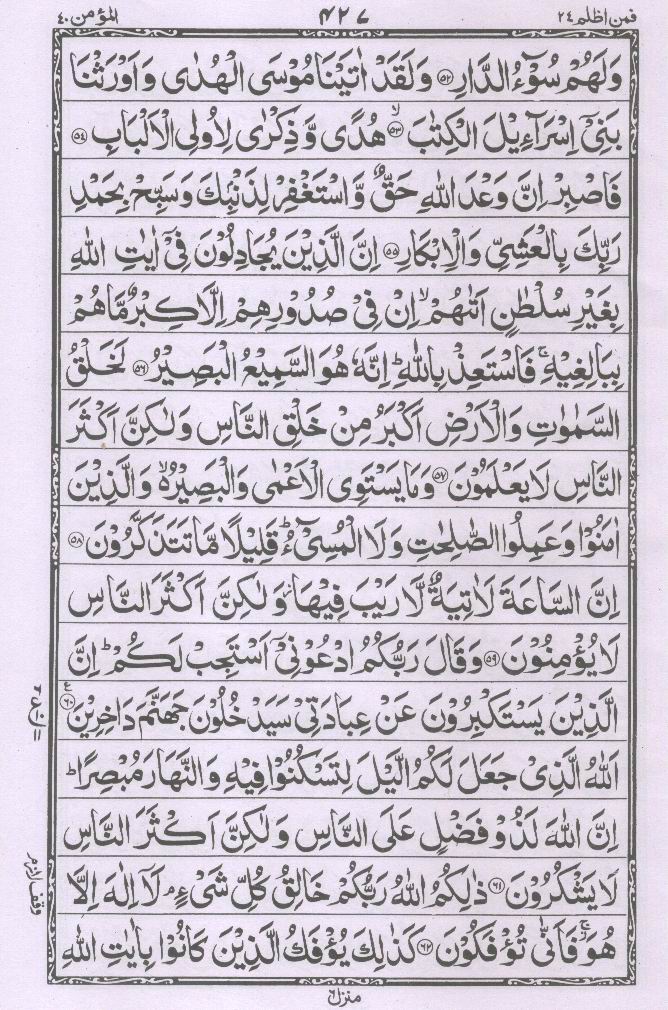 فمن اظلم ٢٤ ٤٢٧ المؤمن ٤٠
وَلَهُمْ سُوْٓءُ الدَّارِ ۝٥٢ وَلَقَدْ اٰتَيْنَا مُوْسَى الْهُدٰى وَاَوْرَثْنَا
بَنِيْٓ اِسْرَآءِيْلَ الْكِتٰبَ ۝٥٣ۙ هُدًى وَّذِكْرٰى لِاُولِى الْاَلْبَابِ ۝٥٤
فَاصْبِرْ اِنَّ وَعْدَ اللّٰهِ حَقٌّ وَّاسْتَغْفِرْ لِذَنْۢبِكَ وَسَبِّحْ بِحَمْدِ
رَبِّكَ بِالْعَشِيِّ وَالْاِبْكَارِ ۝٥٥ اِنَّ الَّذِيْنَ يُجَادِلُوْنَ فِيْٓ اٰيٰتِ اللّٰهِ
بِغَيْرِ سُلْطٰنٍ اَتٰىهُمْ ۙ اِنْ فِيْ صُدُوْرِهِمْ اِلَّا كِبْرٌ مَّا هُمْ
بِبَالِغِيْهِ ۚ فَاسْتَعِذْ بِاللّٰهِ ؕ اِنَّهٗ هُوَ السَّمِيْعُ الْبَصِيْرُ ۝٥٦ لَخَلْقُ
السَّمٰوٰتِ وَالْاَرْضِ اَكْبَرُ مِنْ خَلْقِ النَّاسِ وَلٰكِنَّ اَكْثَرَ
النَّاسِ لَا يَعْلَمُوْنَ ۝٥٧ وَمَا يَسْتَوِى الْاَعْمٰى وَالْبَصِيْرُ ۙ۬ وَالَّذِيْنَ
اٰمَنُوْا وَعَمِلُوا الصّٰلِحٰتِ وَلَا الْمُسِيْٓءُ ؕ قَلِيْلًا مَّا تَتَذَكَّرُوْنَ ۝٥٨
اِنَّ السَّاعَةَ لَاٰتِيَةٌ لَّا رَيْبَ فِيْهَا ؗ وَلٰكِنَّ اَكْثَرَ النَّاسِ
لَا يُؤْمِنُوْنَ ۝٥٩ وَقَالَ رَبُّكُمُ ادْعُوْنِيْٓ اَسْتَجِبْ لَكُمْ ؕ اِنَّ
الَّذِيْنَ يَسْتَكْبِرُوْنَ عَنْ عِبَادَتِيْ سَيَدْخُلُوْنَ جَهَنَّمَ دَاخِرِيْنَ ۝٦٠ۧ
اَللّٰهُ الَّذِيْ جَعَلَ لَكُمُ الَّيْلَ لِتَسْكُنُوْا فِيْهِ وَالنَّهَارَ مُبْصِرًا ؕ
اِنَّ اللّٰهَ لَذُوْ فَضْلٍ عَلَى النَّاسِ وَلٰكِنَّ اَكْثَرَ النَّاسِ
لَا يَشْكُرُوْنَ ۝٦١ ذٰلِكُمُ اللّٰهُ رَبُّكُمْ خَالِقُ كُلِّ شَيْءٍ ۘ لَآ اِلٰهَ اِلَّا
هُوَ ۚ فَاَنّٰى تُؤْفَكُوْنَ ۝٦٢ كَذٰلِكَ يُؤْفَكُ الَّذِيْنَ كَانُوْا بِاٰيٰتِ اللّٰهِ
وقف لازم
منزل ٦